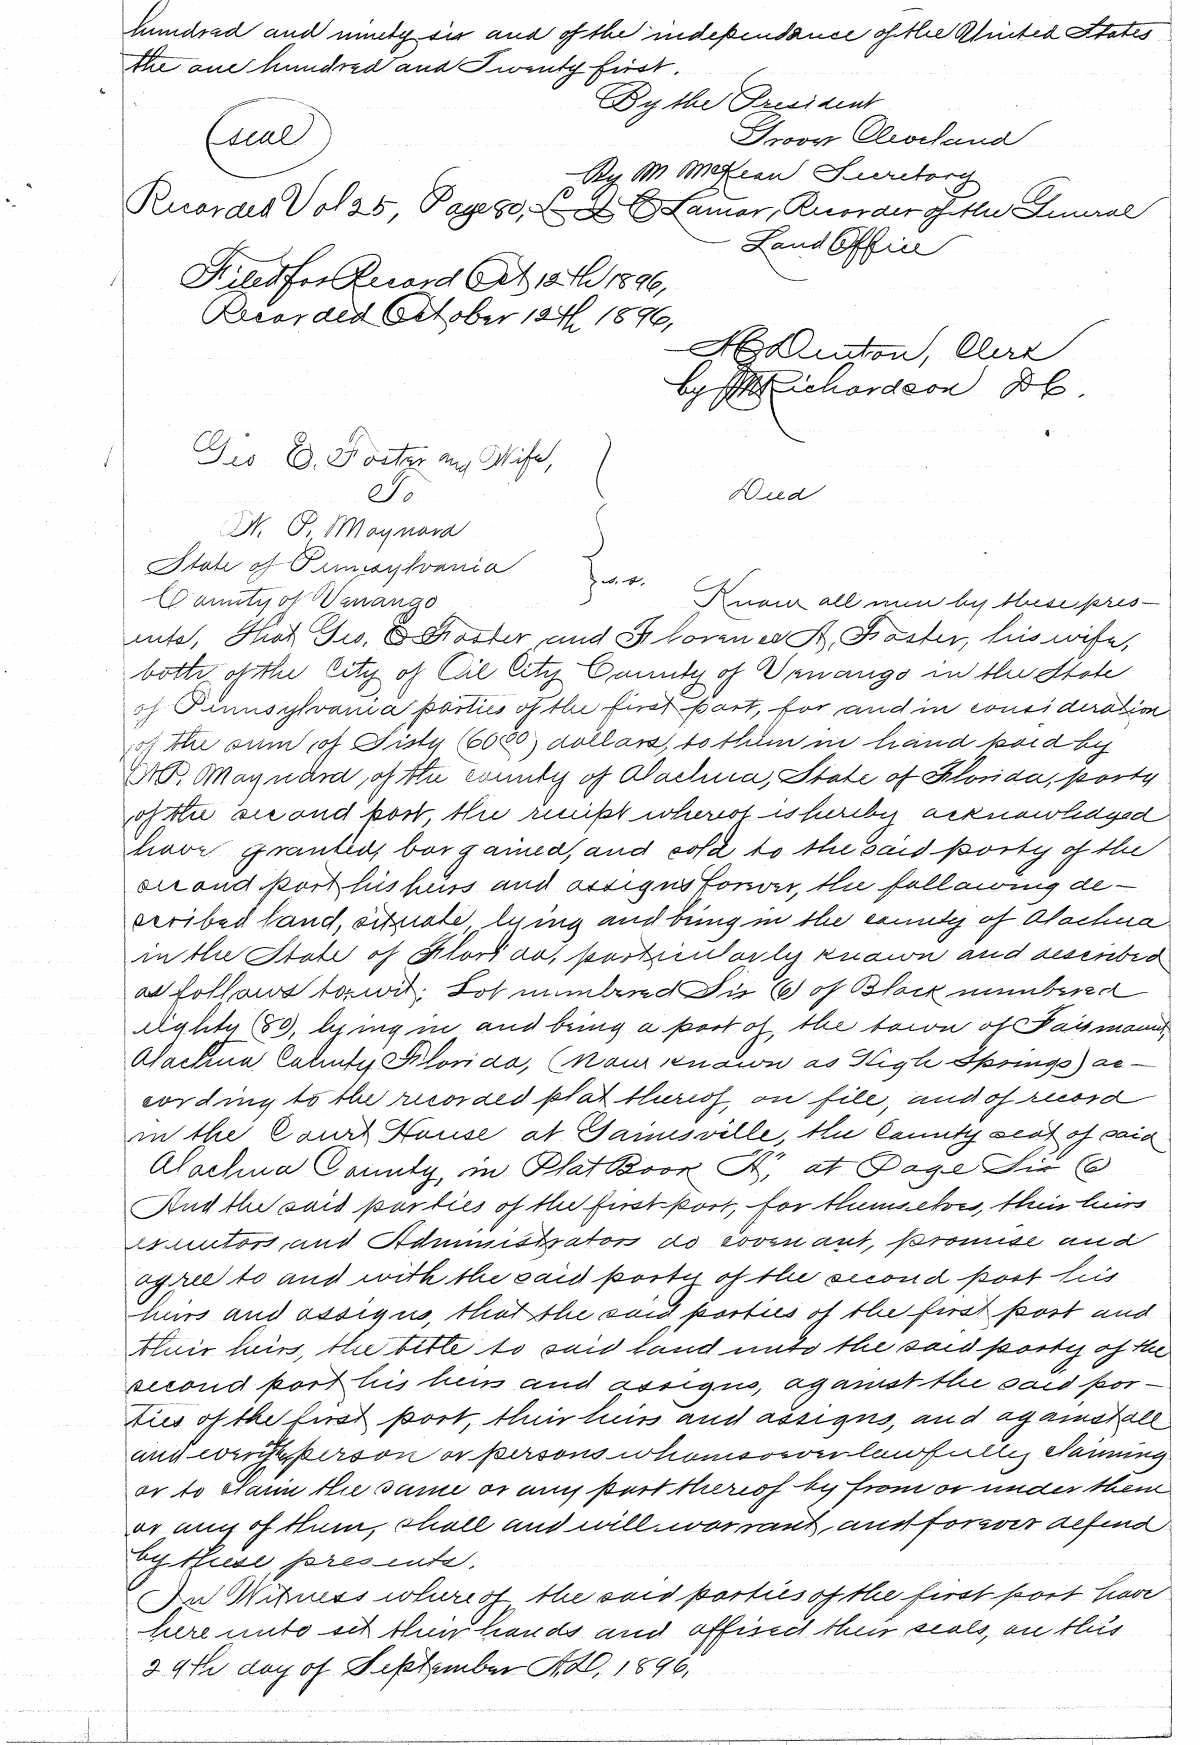 hundred and ninety six and of the independence of the United States
the one hundred and Twenty first.
By the President
Grover Cleveland
(seal)
By M McKean Secretary
Recorded Vol 25, Page 80, L Q C Lamar, Recorder of the General
Land Office
Filed for Record Oct 12th 1896,
Recorded October 12th, 1896,
Denton, Clerk
by Richardson D C.
Geo. E. Foster and Wife,
To
Deed
N. P. Maynard
State of Pennsylvania
s.s.
County of Venango
Know all men by these pres-
ents, That Geo. E Foster and Florence A, Foster, his wife,
both of the City of Oil City County of Venango in the State
of Pennsylvania parties of the first part, for and in consideration
of the sum of Sixty (60 00) dollars, to them in hand paid by
N.P. Maynard, of the county of Alachua, State of Florida, party
of the second part, the receipt whereof is hereby acknowledged
have granted, bargained, and sold to the said party of the
second part his heirs and assigns forever, the following de-
scribed land, situate, lying and being in the county of Alachua
in the State of Florida, particularly known and described
as follows to-wit; Lot numbered Six (6) of Block numbered
eighty (80), lying in and being a part of, the town of Fairmount,
Alachua County Florida, (Now known as High Springs) ac-
cording to the recorded plat thereof, on file, and of record
in the Court House at Gainesville, the County seat of said
Alachua County, in Plat Book "A", at Page Six (6)
And the said parties of the first part, for themselves, their heirs
executors and Administrators do covenant, promise and
agree to and with the said party of the second part his
heirs and assigns, that the said parties of the first part and
their heirs, the title to said land unto the said party of the
second part his heirs and assigns, against the said par-
ties of the first part, their heirs and assigns, and against all
and every person or persons whomsoever lawfully claiming
or to claim the same or any part thereof by from or under them
or any of them, shall and will warrant, and forever defend
by these presents.
In Witness whereof the said parties of the first part have
here unto set their hands and affixed their seals, on this
29th day of September A.D. 1896,